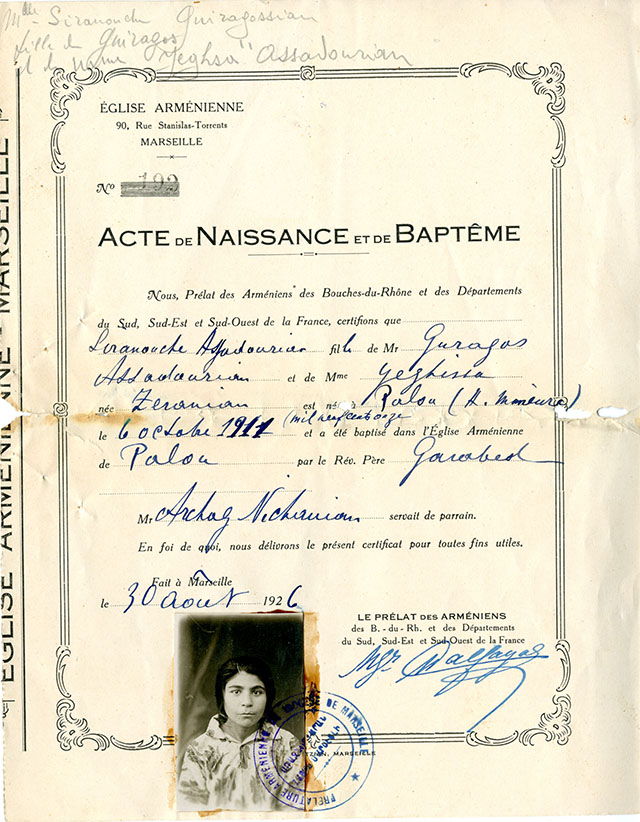 Mlle Siranouche Guiragossian
fille de Guiragos
et de mme Yeghsa "Assadourian
EGLISE ARMÉNIENNE - MARSEILLE
ÉGLISE ARMÉNIENNE
90, Rue Stanislas-Torrents
MARSEILLE
No 192
ACTE DE NAISSANCE ET DE BAPTÊME
Nous, Prélat des Arméniens des Bouches-du-Rhône et des Départements
du Sud, Sud-Est et Sud-Ouest de la France, certifions que
Siranouche Assadourian fille de Mr Guragos
Assadourian et de Mme Yeghissa
née Zeranian est née à Palou (A. mineure)
le 6 octobre 1911 (mil neuf cent onze et a été baptisé dans l'Église Arménienne
de Palou par le Rév. Père Garabed
Mr Archag Nichanian servait de parrain.
En foi de quoi, nous délivrons le présent certificat pour toutes fins utiles.
Fait à Marseille
le 30 août 1926
LE PRÉLAT DES ARMÉNIENS
des B.-du-Rh. et des Départements
du Sud, Sud-Est et Sud-Ouest de la France
Mgr
PRÉLATURE ARMÉNIENNE DU DIOCÈSE DE MARSEILLE
MARSEILLE